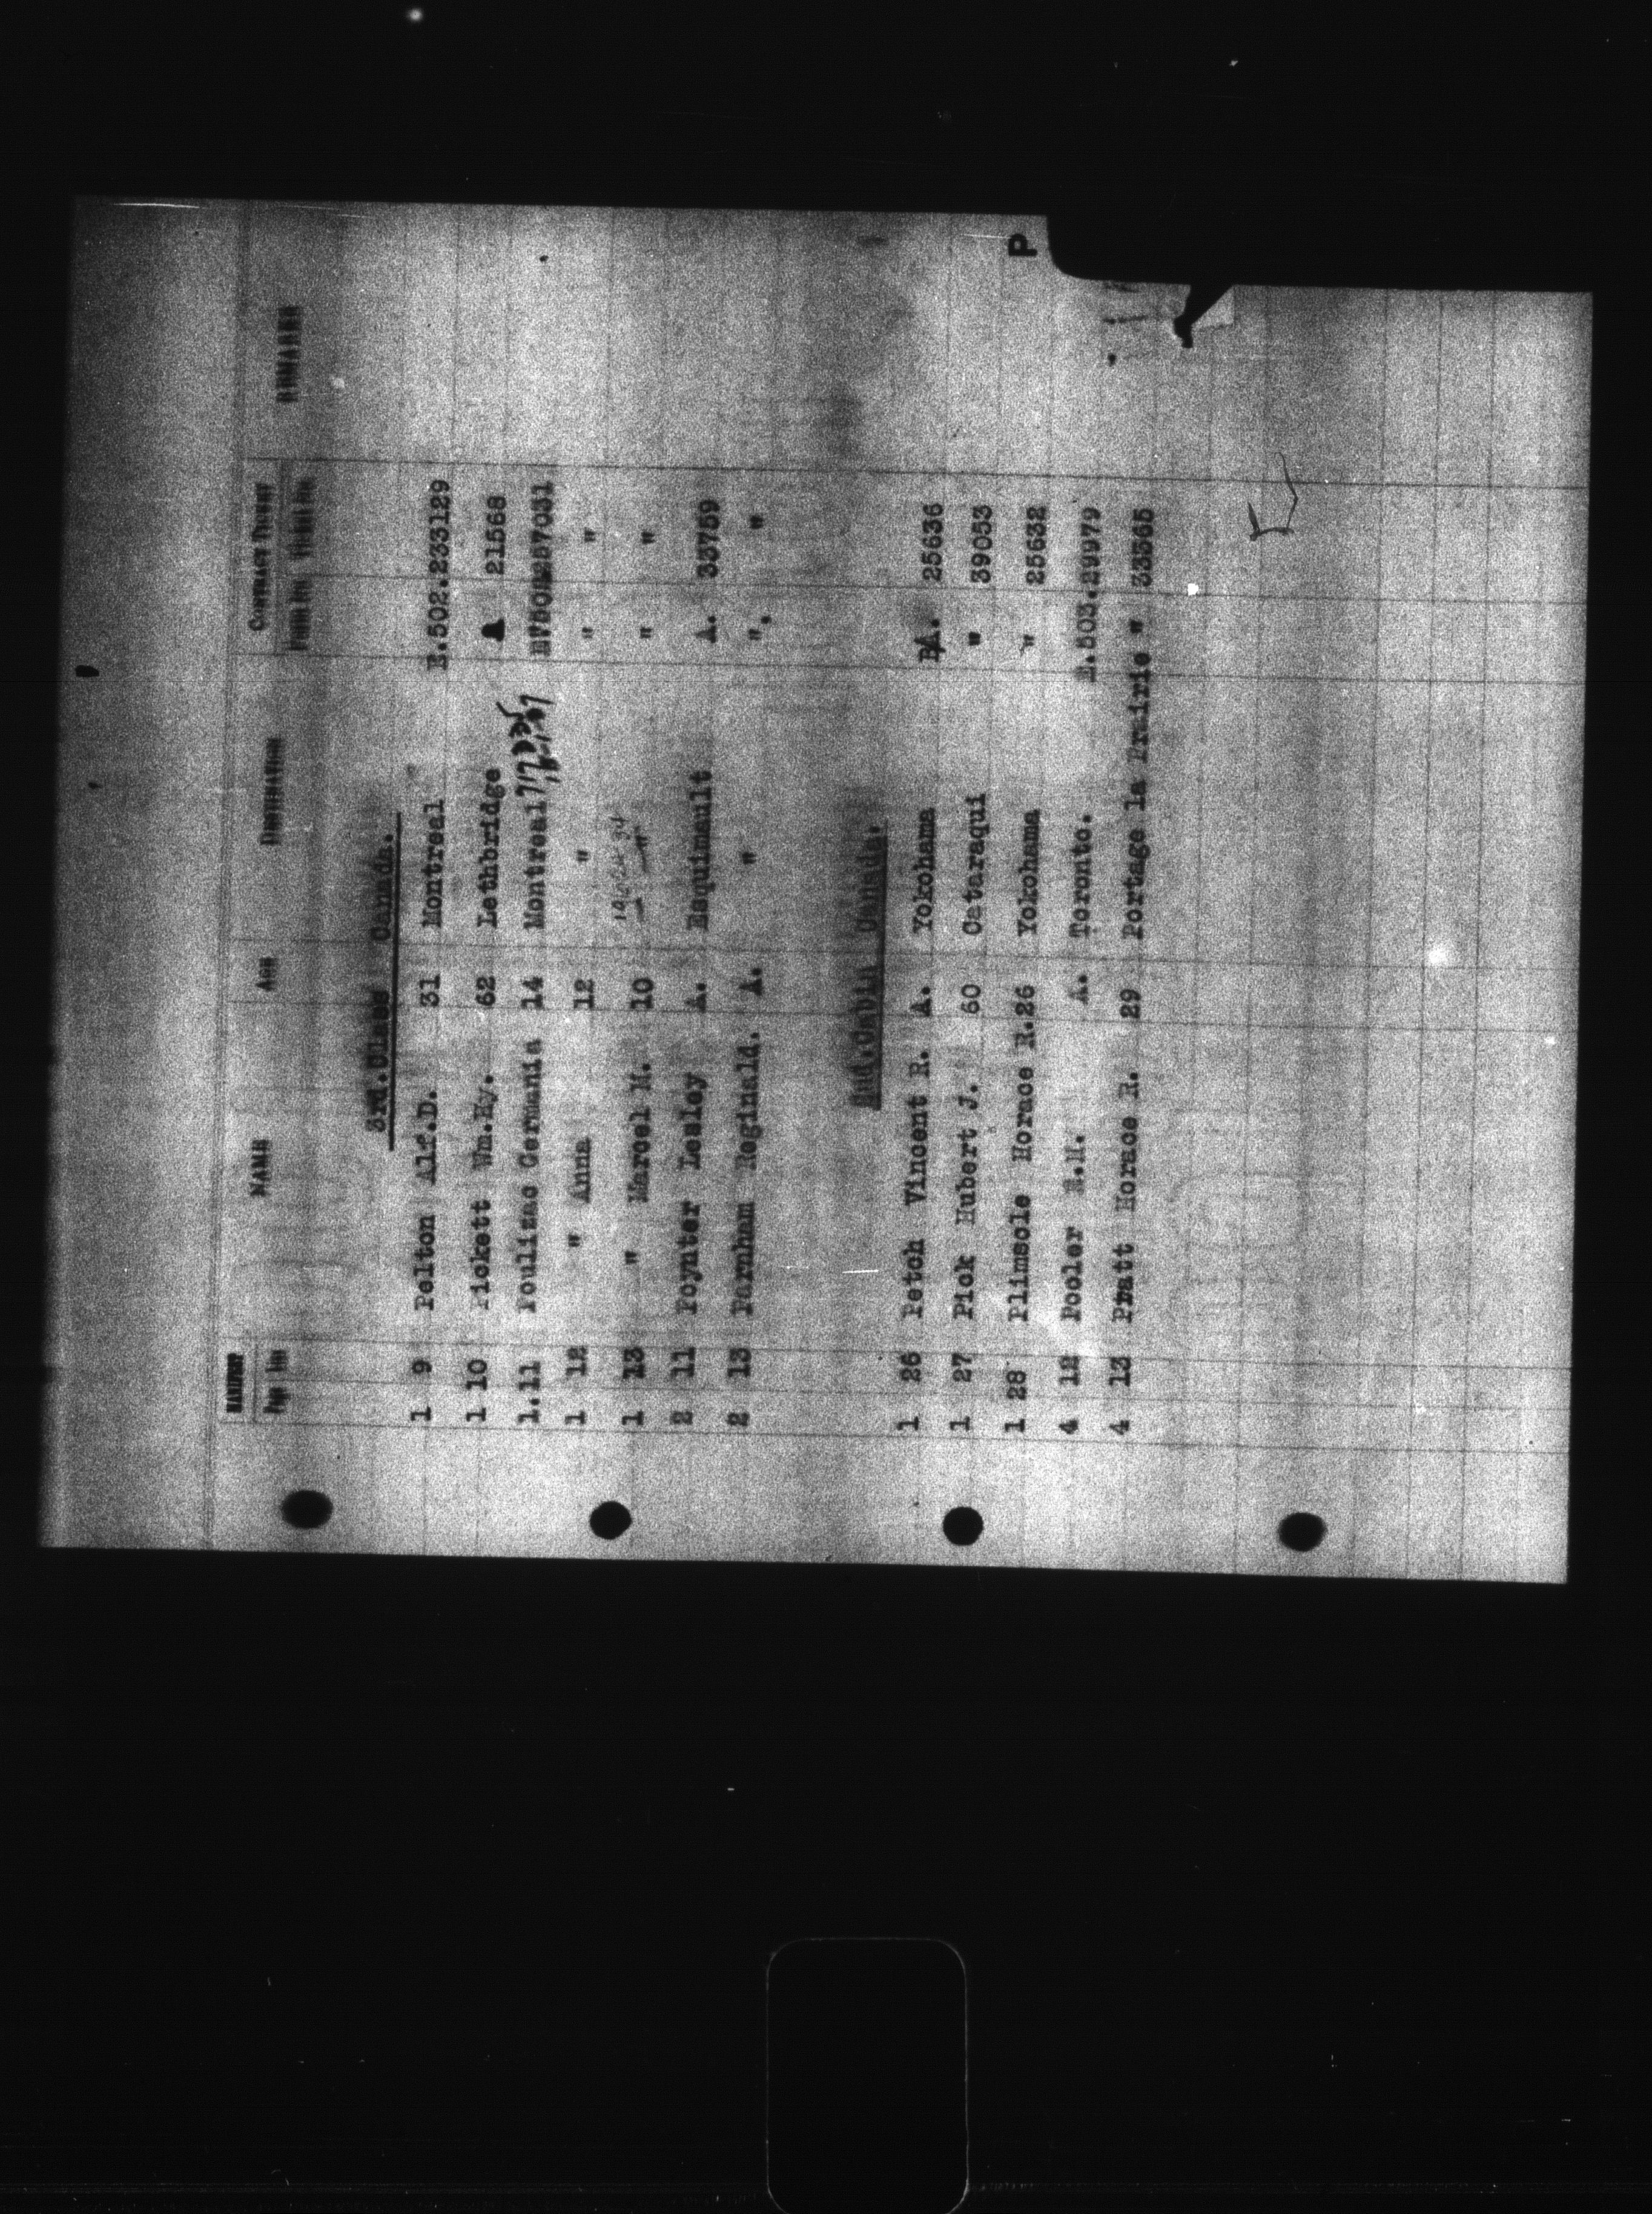 P
MANIFEST NAME AGE DESTINATION CONTRACT TICKET REMARKS
Page Line
3rd.Class Canada.
1 9 Pelton Alf.D. 31 Montreal E.502.233129
1 10 Pickett Wm.Hy. 62 Lethbridge A 21568
1.11 Poulizac Germania 14 Montreal
1 12 " Anna 12 " " "
1 13 " Marcel M. 10 " " "
2 11 Poynter Lesley A. Esquimault A. 33759
2 13 Parnham Reginald. A. " ". "
2nd.Cabin Canada.
1 26 Petch Vincent R. A. Yokohama A. 25636
1 27 Pick Hubert J. 60 Cataraqui " 39053
1 28 Plimsole Horace R.26 Yokohama " 25632
4 12 Pooler E.M. A. Toronto. E.503.29979
4 13 Pratt Horace R. 29 Portage la Prairie " 33365